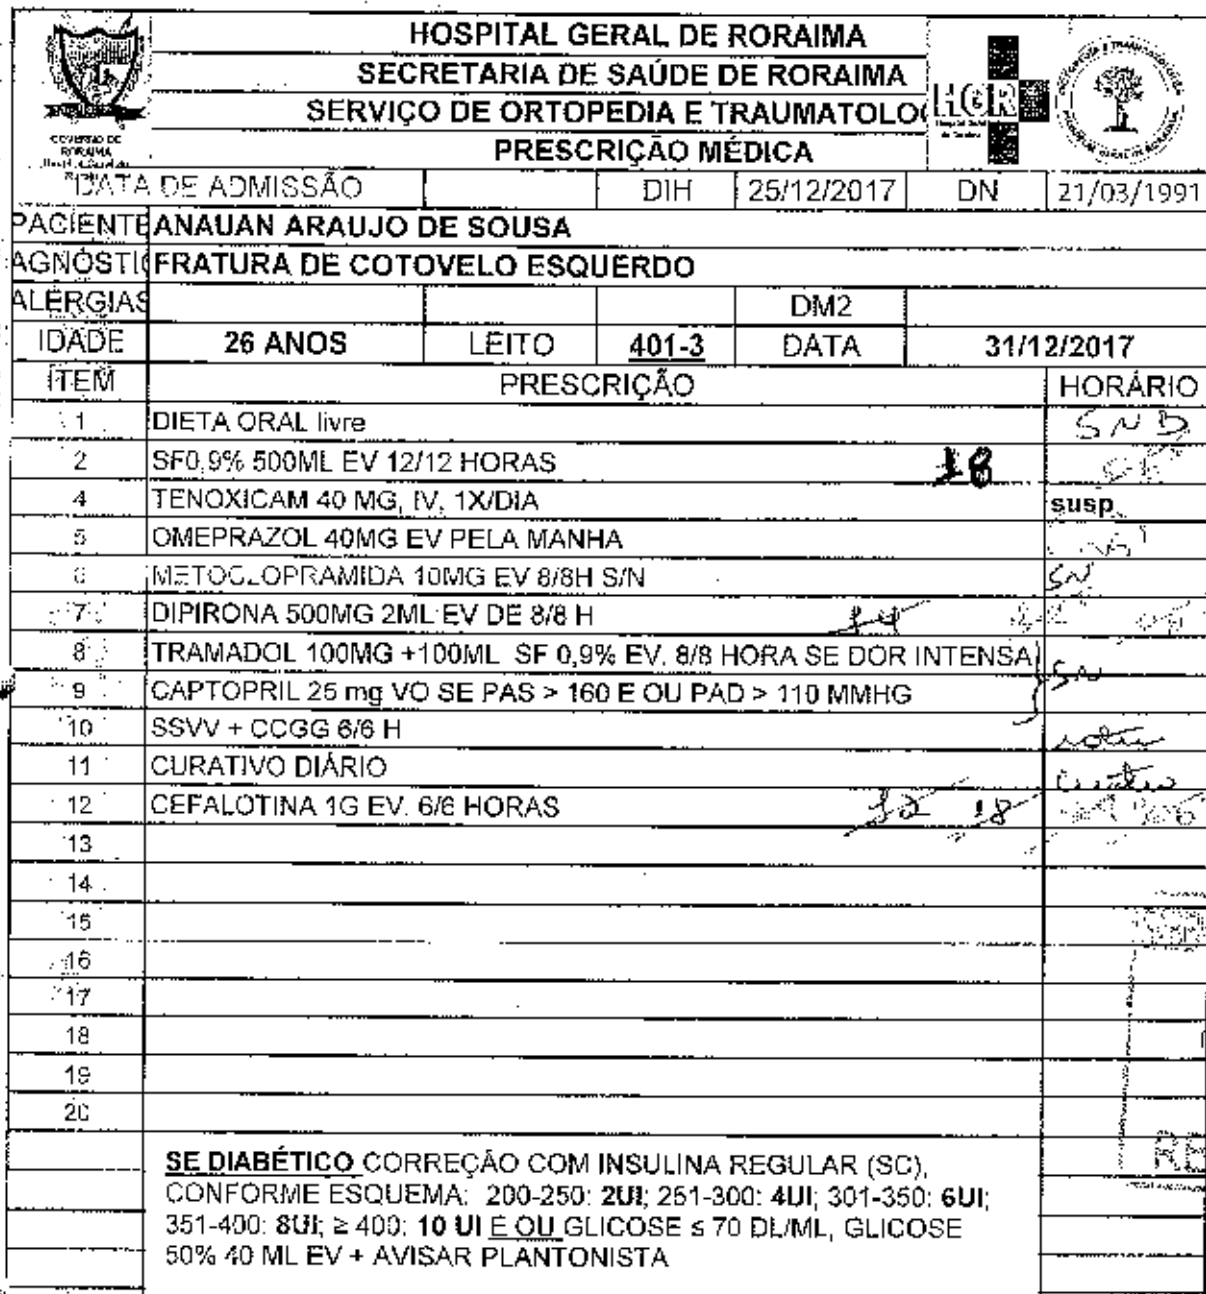 HOSPITAL GERAL DE RORAIMA
SECRETARIA DE SAÚDE DE RORAIMA
SERVIÇO DE ORTOPEDIA E TRAUMATOLO
PRESCRIÇÃO MÉDICA
GOVERNO DE
RORAIMA
HGR
DATA DE ADMISSÃO DIH 25/12/2017 DN 21/03/1991
PACIENTE ANAUAN ARAUJO DE SOUSA
AGNÓSTI FRATURA DE COTOVELO ESQUERDO
ALERGIAS DM2
IDADE 26 ANOS LEITO 401-3 DATA 31/12/2017
ITEM PRESCRIÇÃO HORÁRIO
1 DIETA ORAL livre SND
2 SF0,9% 500ML EV 12/12 HORAS 18
4 TENOXICAM 40 MG, IV, 1X/DIA susp.
5 OMEPRAZOL 40MG EV PELA MANHA
6 METOCLOPRAMIDA 10MG EV 8/8H S/N SN
7 DIPIRONA 500MG 2ML EV DE 8/8 H 14
8 TRAMADOL 100MG +100ML SF 0,9% EV. 8/8 HORA SE DOR INTENSA
9 CAPTOPRIL 25 mg VO SE PAS > 160 E OU PAD > 110 MMHG SN
10 SSVV + CCGG 6/6 H rotina
11 CURATIVO DIÁRIO
12 CEFALOTINA 1G EV. 6/6 HORAS 12 18
13
14
15
16
17
18
19
20
SE DIABÉTICO CORREÇÃO COM INSULINA REGULAR (SC),
CONFORME ESQUEMA: 200-250: 2UI; 251-300: 4UI; 301-350: 6UI;
351-400: 8UI; ≥ 400: 10 UI E OU GLICOSE ≤ 70 DL/ML, GLICOSE
50% 40 ML EV + AVISAR PLANTONISTA